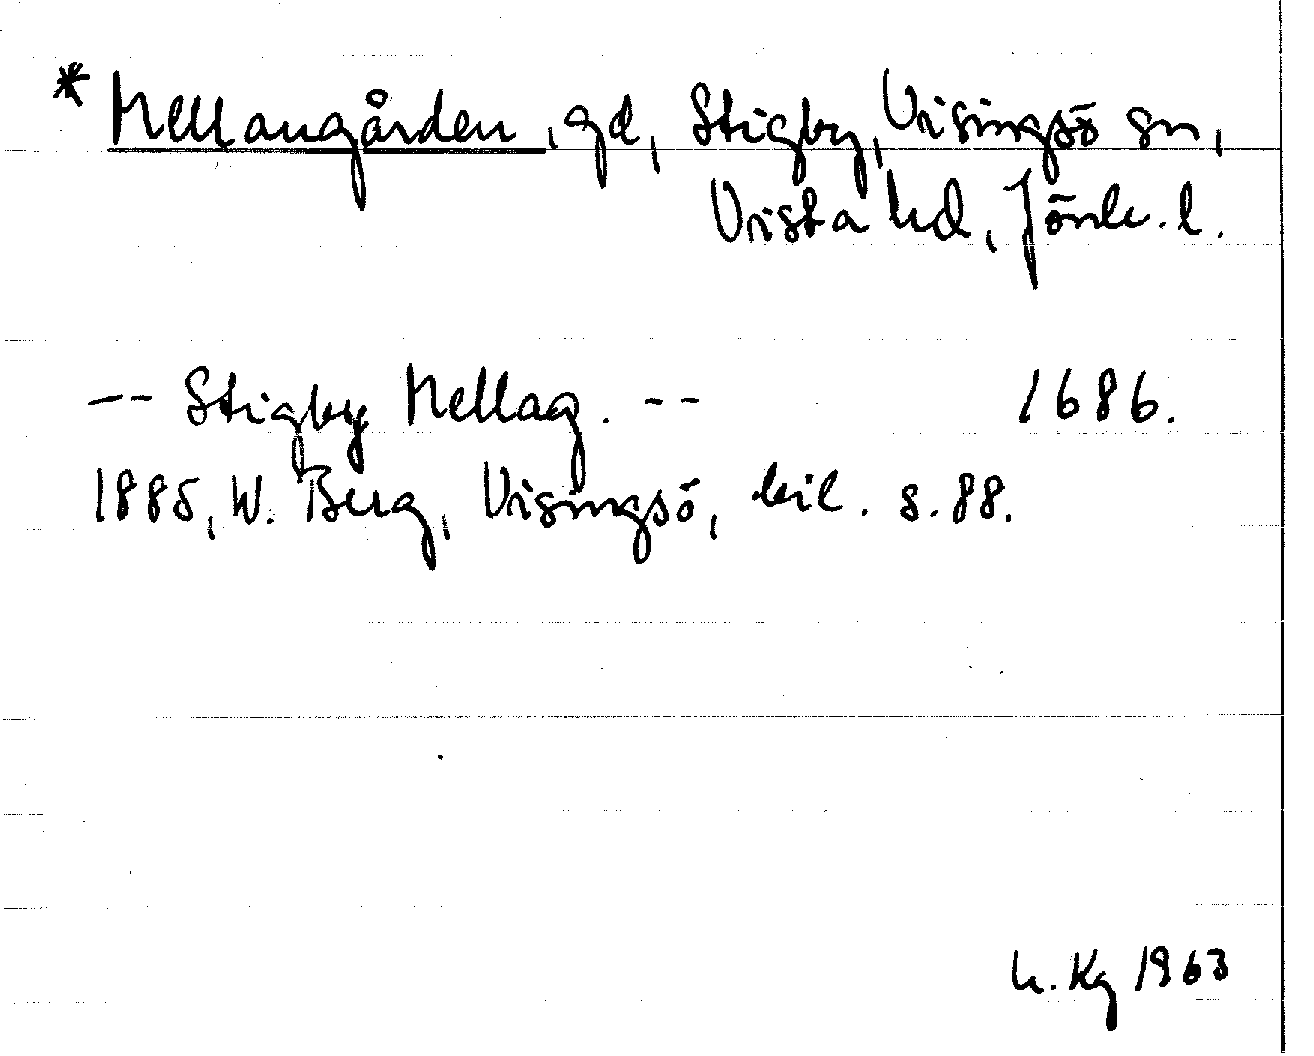 * Mellangården, gd, Stigby, Visingsö sn,
Vista hd, Jönk. l.
-- Stigby Mellag. -- 1686.
1885, W. Berg, Visingsö, bil. s. 88.
h. Kg 1963